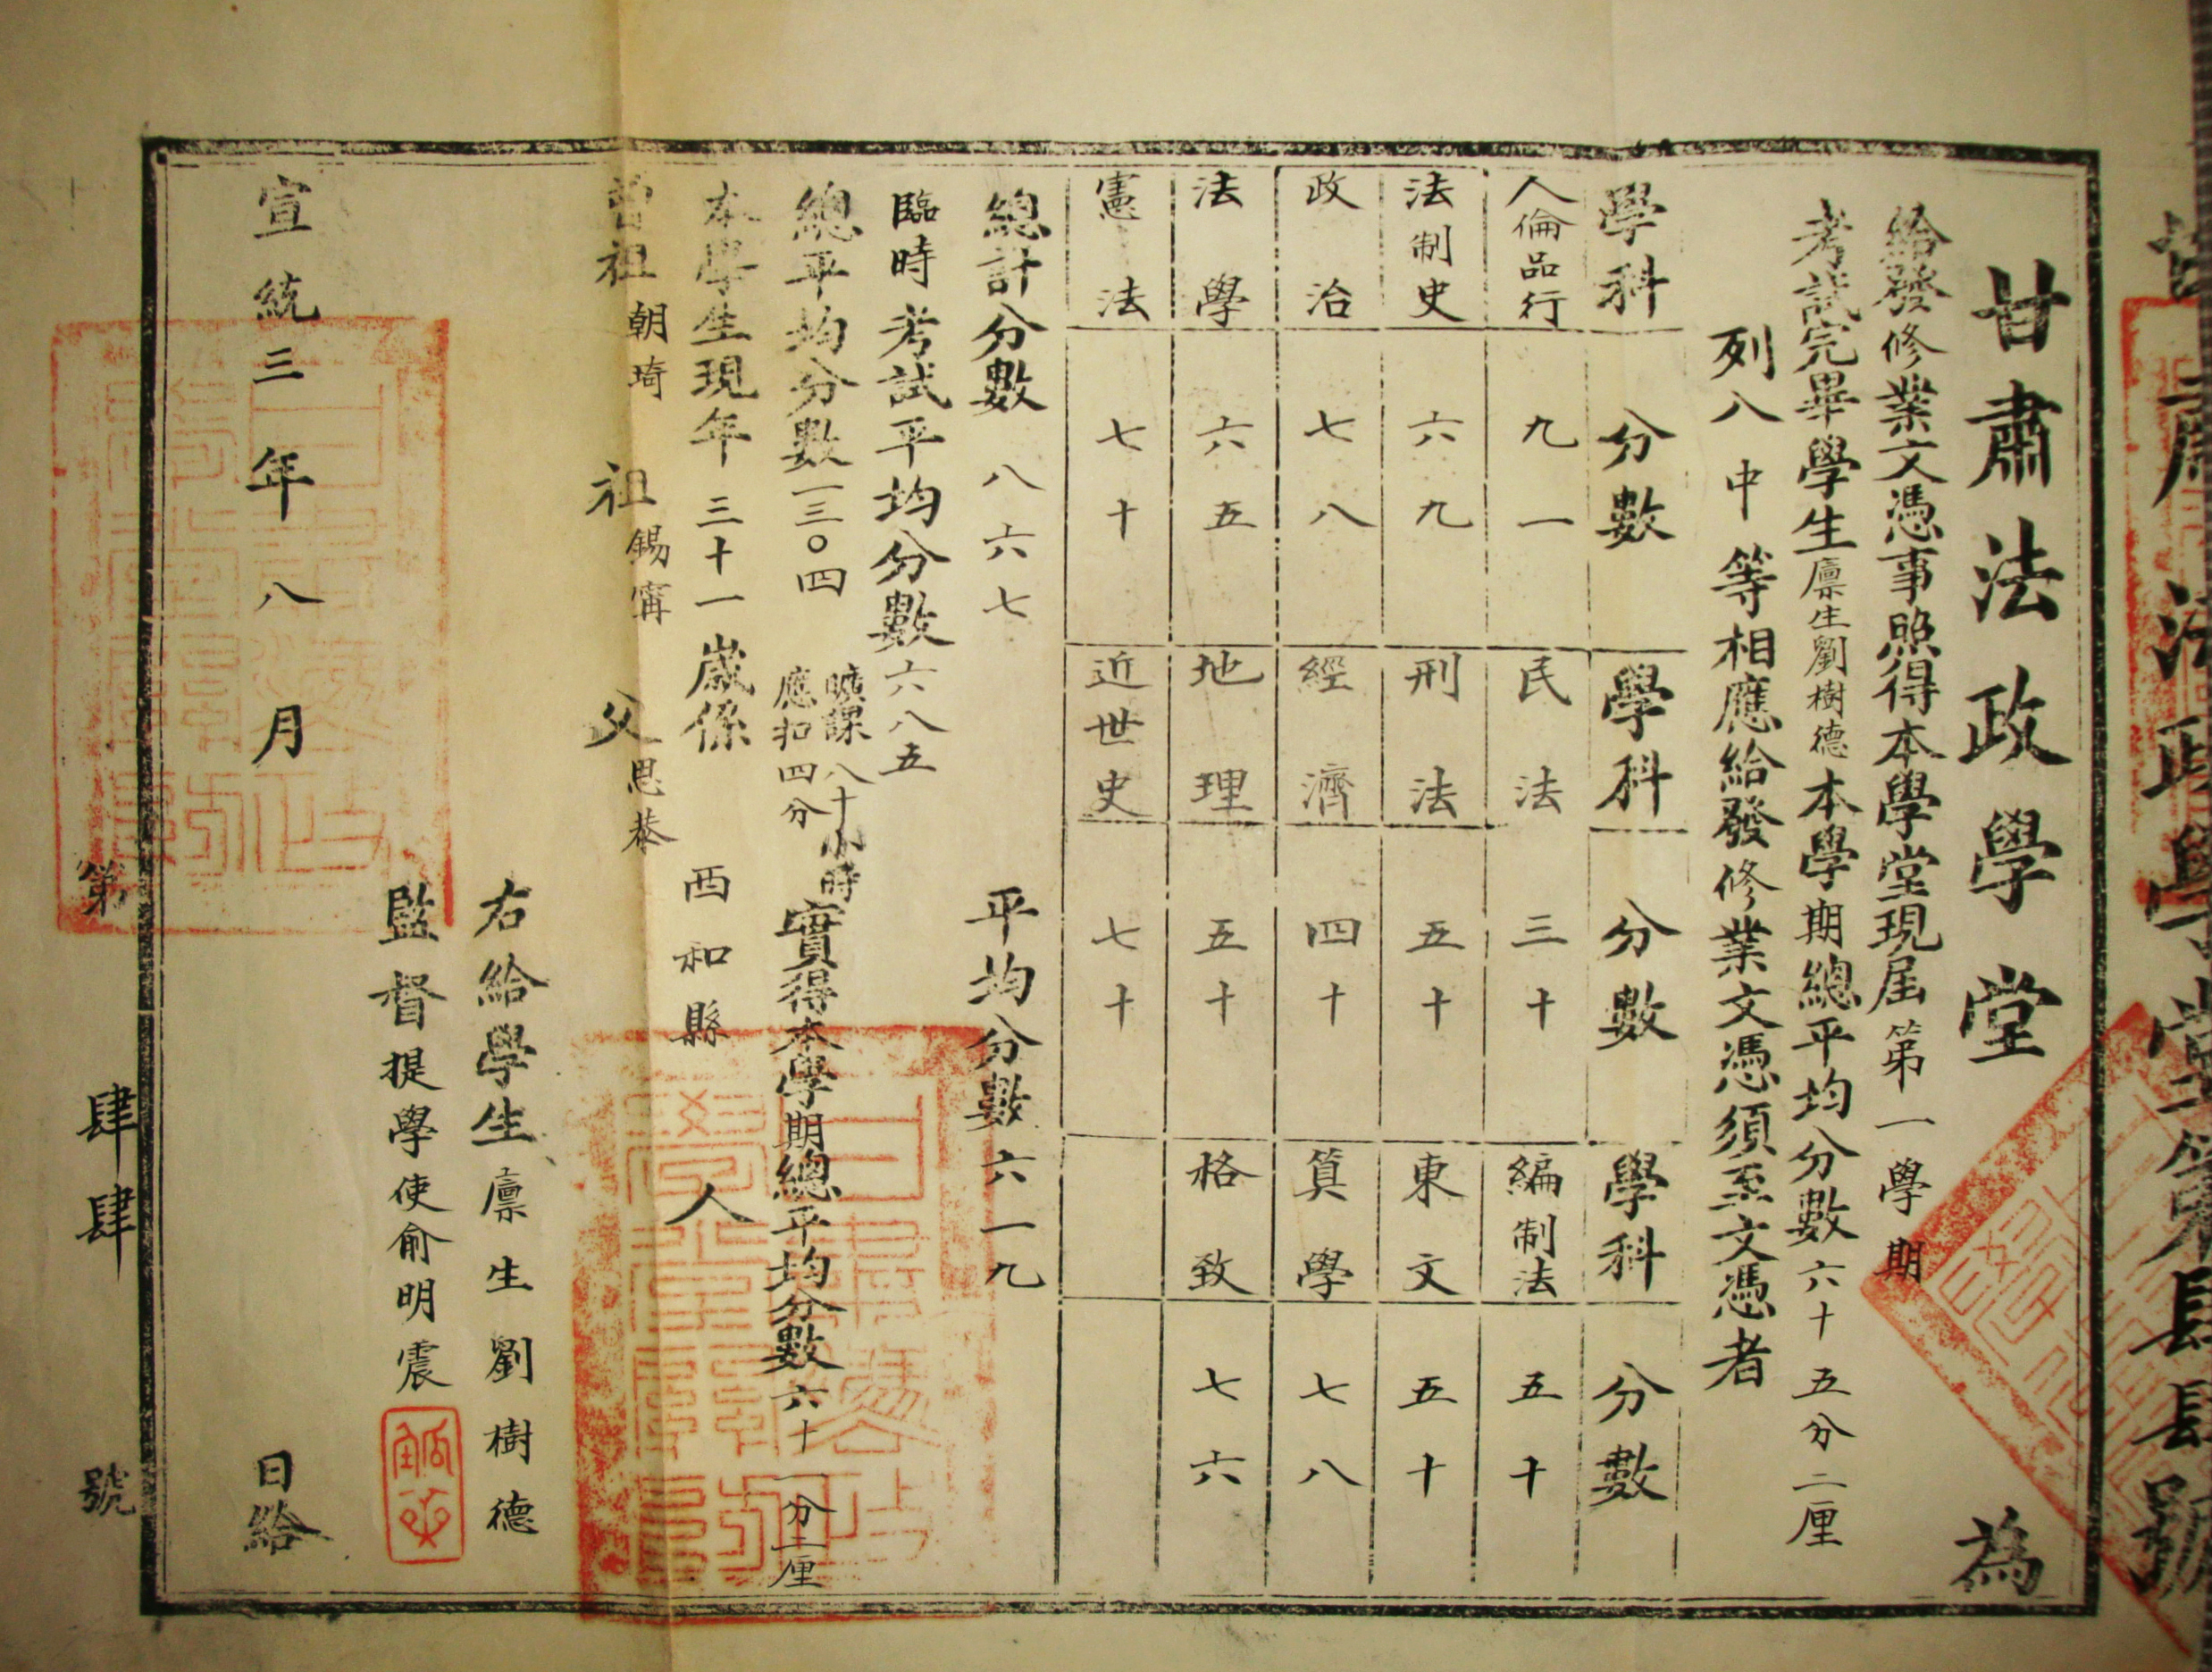 甘肅法政學堂為
給發修業文憑事照得本學堂現屆第一學期
考試完畢學生廩生劉樹德本學期總平均分數六十五分二厘
列八中等相應給發修業文憑須至文憑者
學科 分數 學科 分數 學科 分數
人倫品行 九一 民法 三十 編制法 五十
法制史 六九 刑法 五十 東文 五十
政治 七八 經濟 四十 算學 七八
法學 六五 地理 五十 格致 七六
憲法 七十 近世史 七十
總計分數 八六七 平均分數六一九
臨時考試平均分數六八五
總平均分數一三〇四 曠課八十小時應扣四分 實得本學期總平均分數六十一分二厘
本學生現年三十一歲係西和縣人
曾祖朝琦 祖錫甯 父思恭
右給學生廩生劉樹德
監督提學使俞明震
宣統三年八月 日給
第肆肆號